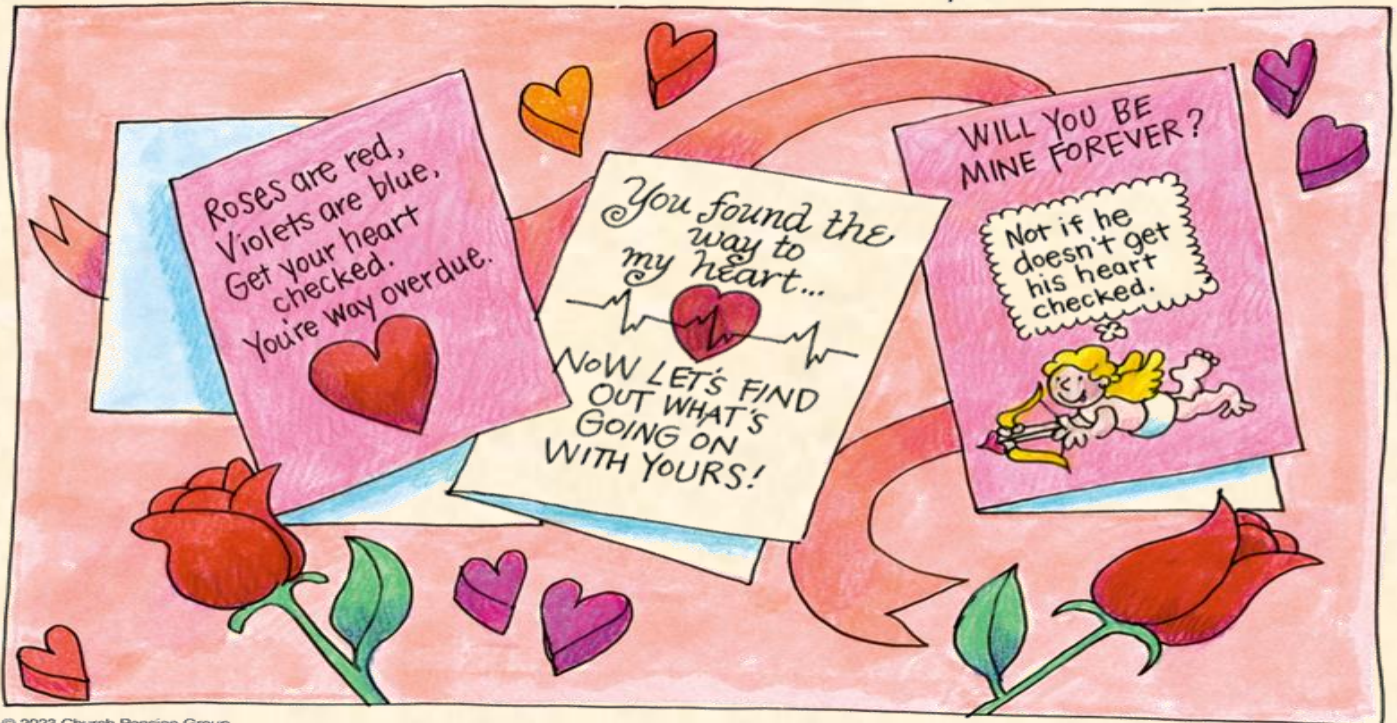 Roses are red,
Violets are blue,
Get your heart
checked.
You're way overdue.
You found the
way to
my heart...
NOW LET'S FIND
OUT WHAT'S
GOING ON
WITH YOURS!
WILL YOU BE
MINE FOREVER?
Not if he
doesn't get
his heart
checked.
© 2023 Church Pension Group